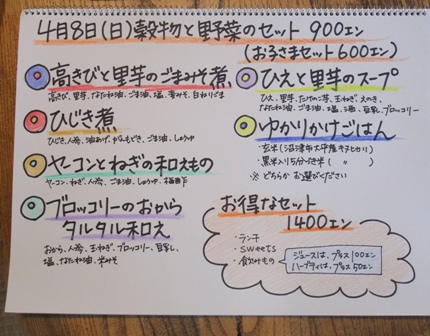 4月8日(日)穀物と野菜のセット 900エン
(お子さまセット600エン)
高きびと里芋のごまみそ煮
高きび、里芋、なたね油、ごま油、塩、麦みそ、白ねりごま
ひじき煮
ひじき、人参、油あげ、かんもどき、ごま油、しょうゆ
ヤーコンとねぎの和えもの
ヤーコン、ねぎ、人参、ごま油、しょうゆ、梅酢
ブロッコリーのおから
タルタル和え
おから、人参、玉ねぎ、ブロッコリー、豆乳、
塩、なたね油、米みそ
ひえと里芋のスープ
ひえ、里芋、たけのこ芋、玉ねぎ、えのき、
なたね油、ごま油、塩、酒、豆乳、ブロッコリー
ゆかりかけごはん
・玄米(沼津市大平産キヌヒカリ)
・黒米入り5分づき米( 〃 )
※どちらか お選びください
お得なセット
1400エン
・ランチ
・sweets
・飲みもの
ジュースは、プラス100エン
ハーブティは、プラス50エン